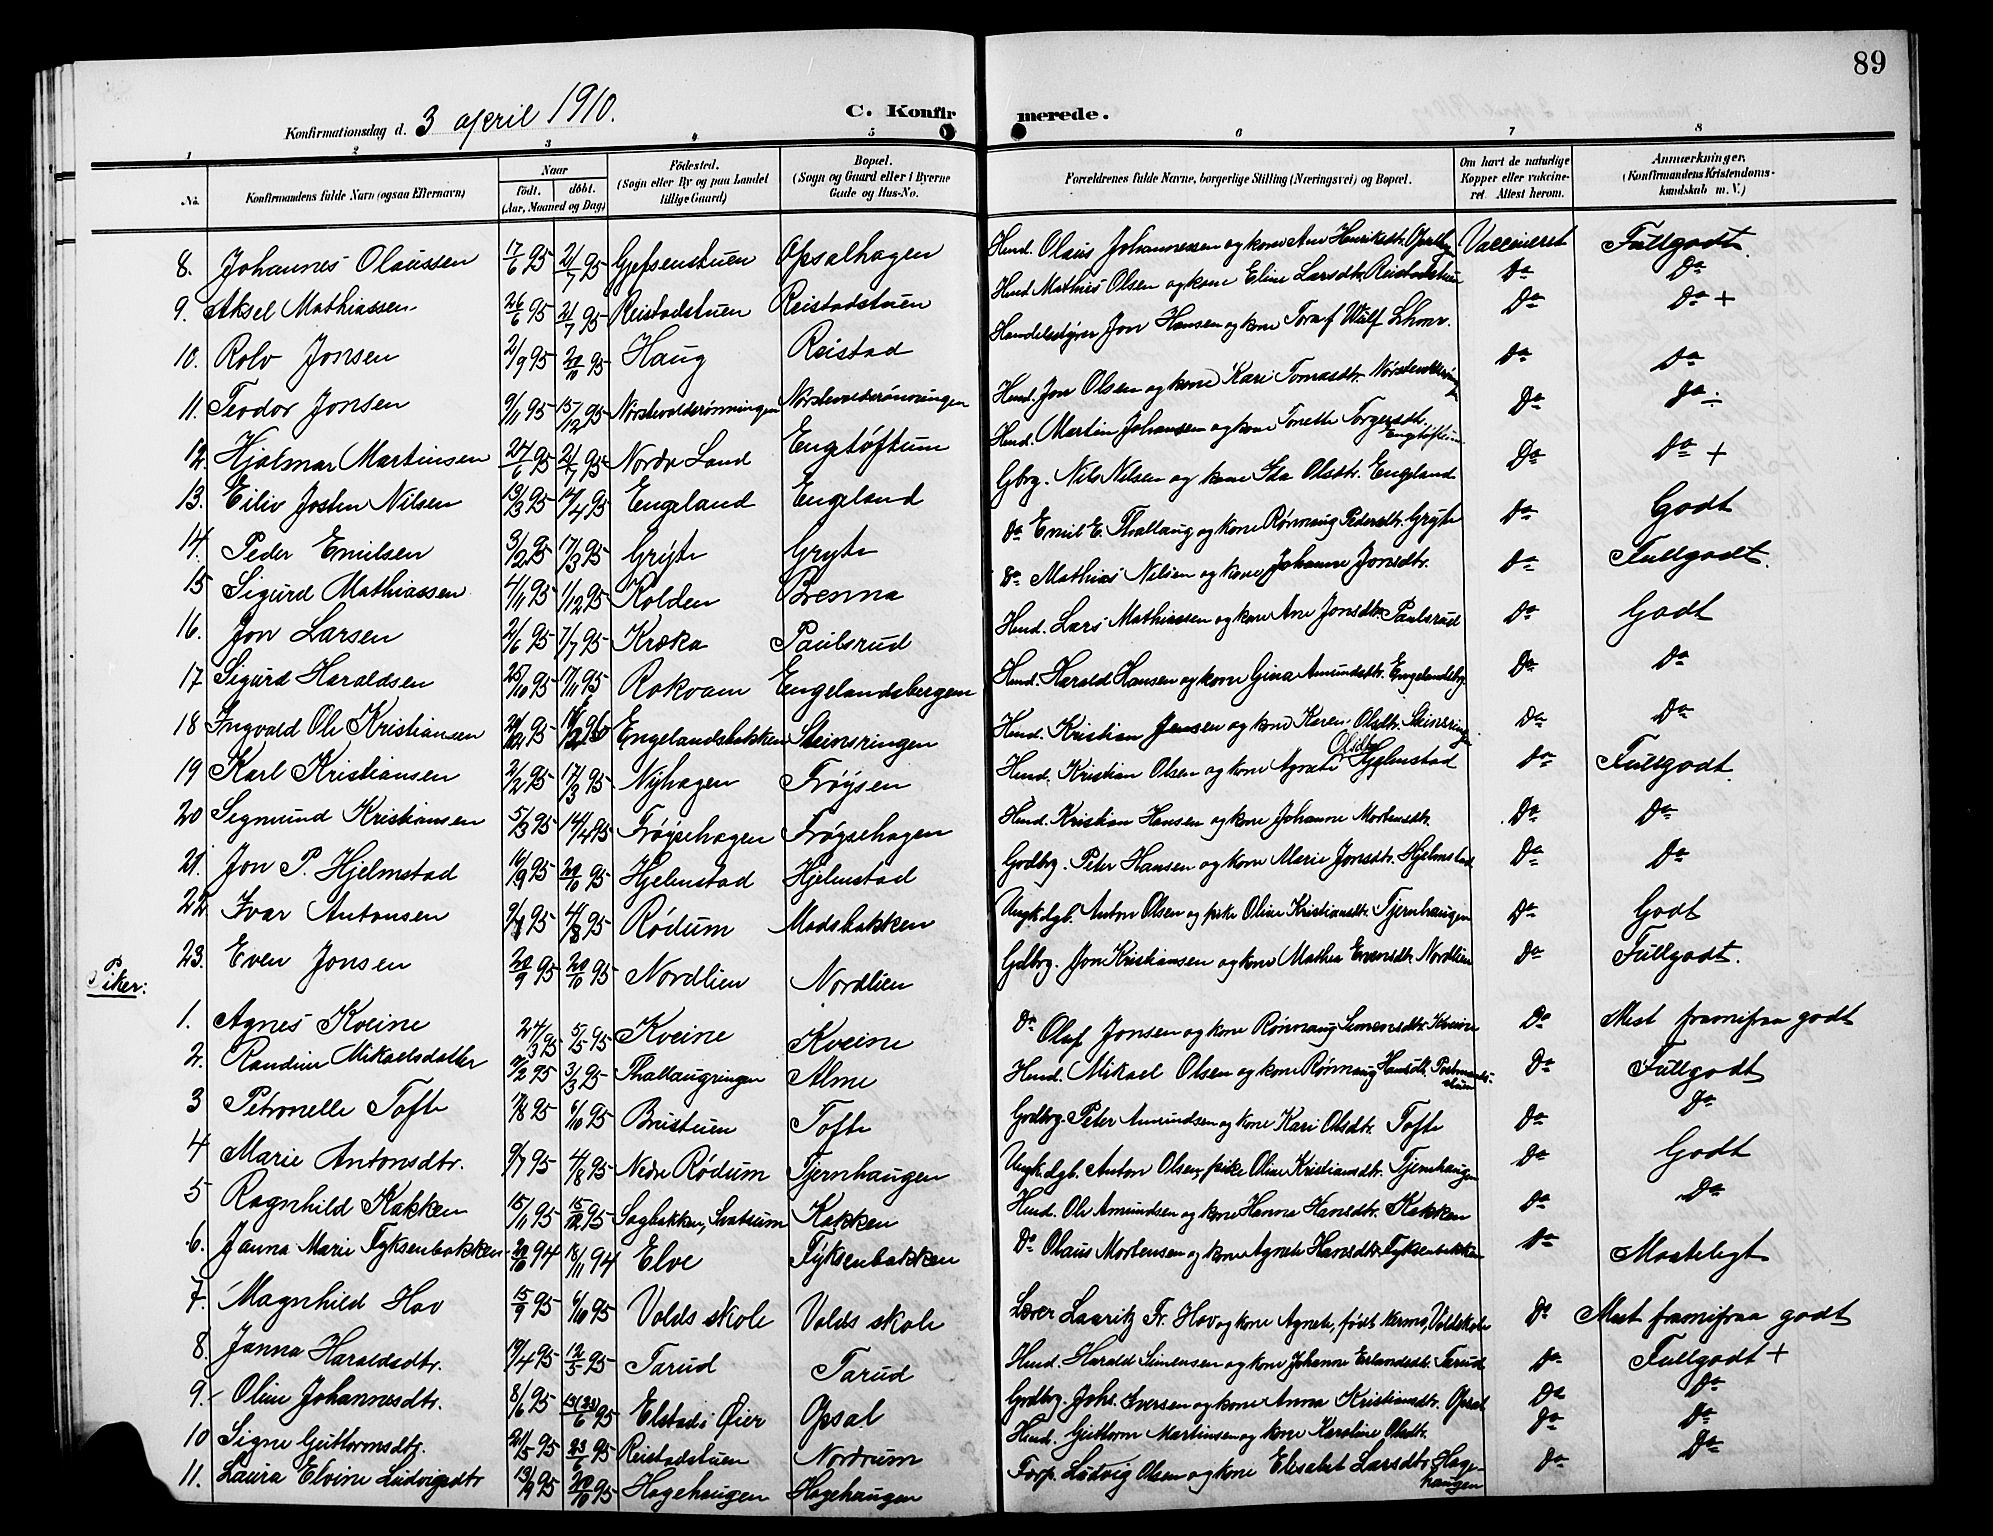 89
Konfirmationsdag d. 3 april 1910.
C. Konfirmerede.
1 2 3 4 5 6 7 8
No. Konfirmandens fulde Navn (ogsaa Efternavn) Naar født. døbt. (Aar, Maaned og Dag) Födested. (Sogn eller By og paa Landet tillige Gaard) Bopæl. (Sogn og Gaard eller i Byerne Gade og Hus-No. Forældrenes fulde Navne, borgerlige Stilling (Næringsvei) og Bopæl. Om havt de naturlige Kopper eller vaccineret. Attest herom. Anmærkninger. (Konfirmandens Kristendomskundskab m. V.)
8. Johannes Olaussen 17/6 95 21/7 95 Gjefsenstuen Opsalhagen Husd. Olaus Johannessen og kone Ane Henriksdtr. Vaccineret Fullgodt.
9. Aksel Mathiassen 26/6 95 21/7 95 Reistadstuen Reistadstuen Husd. Mathias Olsen og kone Eline Larsdtr. Reistadstuen Do Do
10. Rolv Jonsen 2/9 95 20/10 95 Haug Reistad Handelsstyrer Jon Hansen og kone Tora f. Wulf Do Do +
11. Teodor Jonsen 9/11 95 15/12 95 Nørstevolderønningen Nørstevolderønningen Husd. Jon Olsen og kone Kari Tomasdtr. Do Do
12. Hjalmar Martinsen 24/6 95 21/7 95 Nordre Land Engtøftum Husd. Martin Johansen og kone Tonette Torgersdtr. Engtøftum Do Do ÷
13. Eiliv Josten Nilsen 13/3 95 14/4 95 Engeland Engeland Gbrg. Nils Nilsen og kone Ida Olsdtr. Engeland Do Do +
14. Peder Emilsen 3/2 95 17/3 95 Gryte Gryte Do Emil E. Thallaug og kone Rønnaug Pedersdtr. Gryte Do Godt
15 Sigurd Mathiassen 4/11 95 1/12 95 Kolden Brenna Do Mathias Nilsen og kone Johanne Jonsdtr. Do Fullgodt.
16. Jon Larsen 2/6 95 7/7 95 Kræka Paulsrud Husd. Lars Mathiassen og kone Ane Jonsdtr. Paulsrud Do Godt
17 Sigurd Haraldsen 25/10 95 17/11 95 Rokvam Engelandsbergen Husd. Harald Hansen og kone Gina Amundsdtr. Engelandsbg. Do Do
18 Ingvald Ole Kristiansen Engelandsbakken Steinsringen Husd. Kristian Jensen og kone Karen Olsdtr. Steinsringen Do Do
19 Karl Kristiansen 2/2 95 17/3 95 Nyhagen Frøysen Husd. Kristian Olsen og kone Agnete Olsdtr. Hjelmstad Do Fullgodt.
20 Segmund Kristiansen 5/3 95 14/4 95 Frøysehagen Frøysehagen Husd. Kristian Hansen og kone Johanne Mortensdtr. Do Do
21. Jon P. Hjelmstad 16/9 95 20/10 95 Hjelmstad Hjelmstad Gardbrg. Peter Hansen og kone Marie Jonsdtr. Hjelmstad Do Do
22 Ivar Antonsen 9/7 95 4/8 95 Rødum Madsbakken Ungk. dgb. Anton Olsen og pike Oline Kristiansdtr. Tjernhaugen Do Godt
23. Even Jonsen 20/9 95 20/10 95 Nordlien Nordlien Gdbrg. Jon Kristiansen og kone Mathea Evensdtr. Nordlien Do Fullgodt.
Piker:
1. Agnes Kveine 24/3 95 5/5 95 Kveine Kveine Do Olaf Jonsen og kone Rønnaug Simensdtr. Kveine Do Mest framifraa godt
2. Randine Mikaelsdatter 9/2 95 3/3 95 Thallaugringen Alme Husd. Mikael Olsen og kone Rønnaug Hansdtr. Do Fullgodt
3 Petronelle Tofte 7/8 95 6/10 95 Bustuen Tofte Gardbrg. Peter Amundsen og kone Kari Olsdtr. Tofte Do Do
4 Marie Antonsdtr. 9/7 95 4/8 95 Nedre Rødum Tjernhaugen Ungk. dgb. Anton Olsen, pike Oline Kristiansdtr. Tjernhaugen Do Godt
5 Ragnhild Kakken 15/11 95 15/12 95 Sagbakken, Svatsum Kakken Husd. Ole Amundsen og kone Hanna Hansdtr. Kakken Do Do
6. Janna Marie Fyksenbakken 20/10 94 18/11 94 Elve Fyksenbakken Do Olaus Mortensen og kone Agnete Hansdtr. Fyksenbakken Do Maateligt
7. Magnhild Hov 15/9 95 6/10 95 Volds skole Volds skole Lærer Lauritz Fr. Hov og kone Agnete, født Voldskole Do Mest framifraa godt
8. Janna Haraldsdtr. 19/4 95 12/5 95 Tarud Tarud Husd. Harald Simensen og kone Johanne Erlandsdtr. Tarud Do Fullgodt +
9. Oline Johannesdtr. 8/6 95 13(23)/6 95 Elstad i Øier Opsal Gdbrg. Johs. Iversen og kone Anna Kristiansdtr. Opsal Do Do
10 Signe Guttormsdtr. 21/5 95 Reistadstuen Nordrum Husd. Guttorm Martinsen og kone Karoline Olsdtr. Do Do
11. Laura Elvine Ludvigsdtr 13/9 95 20/10 95 Hagehaugen Hagehaugen Forp. Ludvig Olsen og kone Elisabet Larsdtr. Hagehaugen Do Do